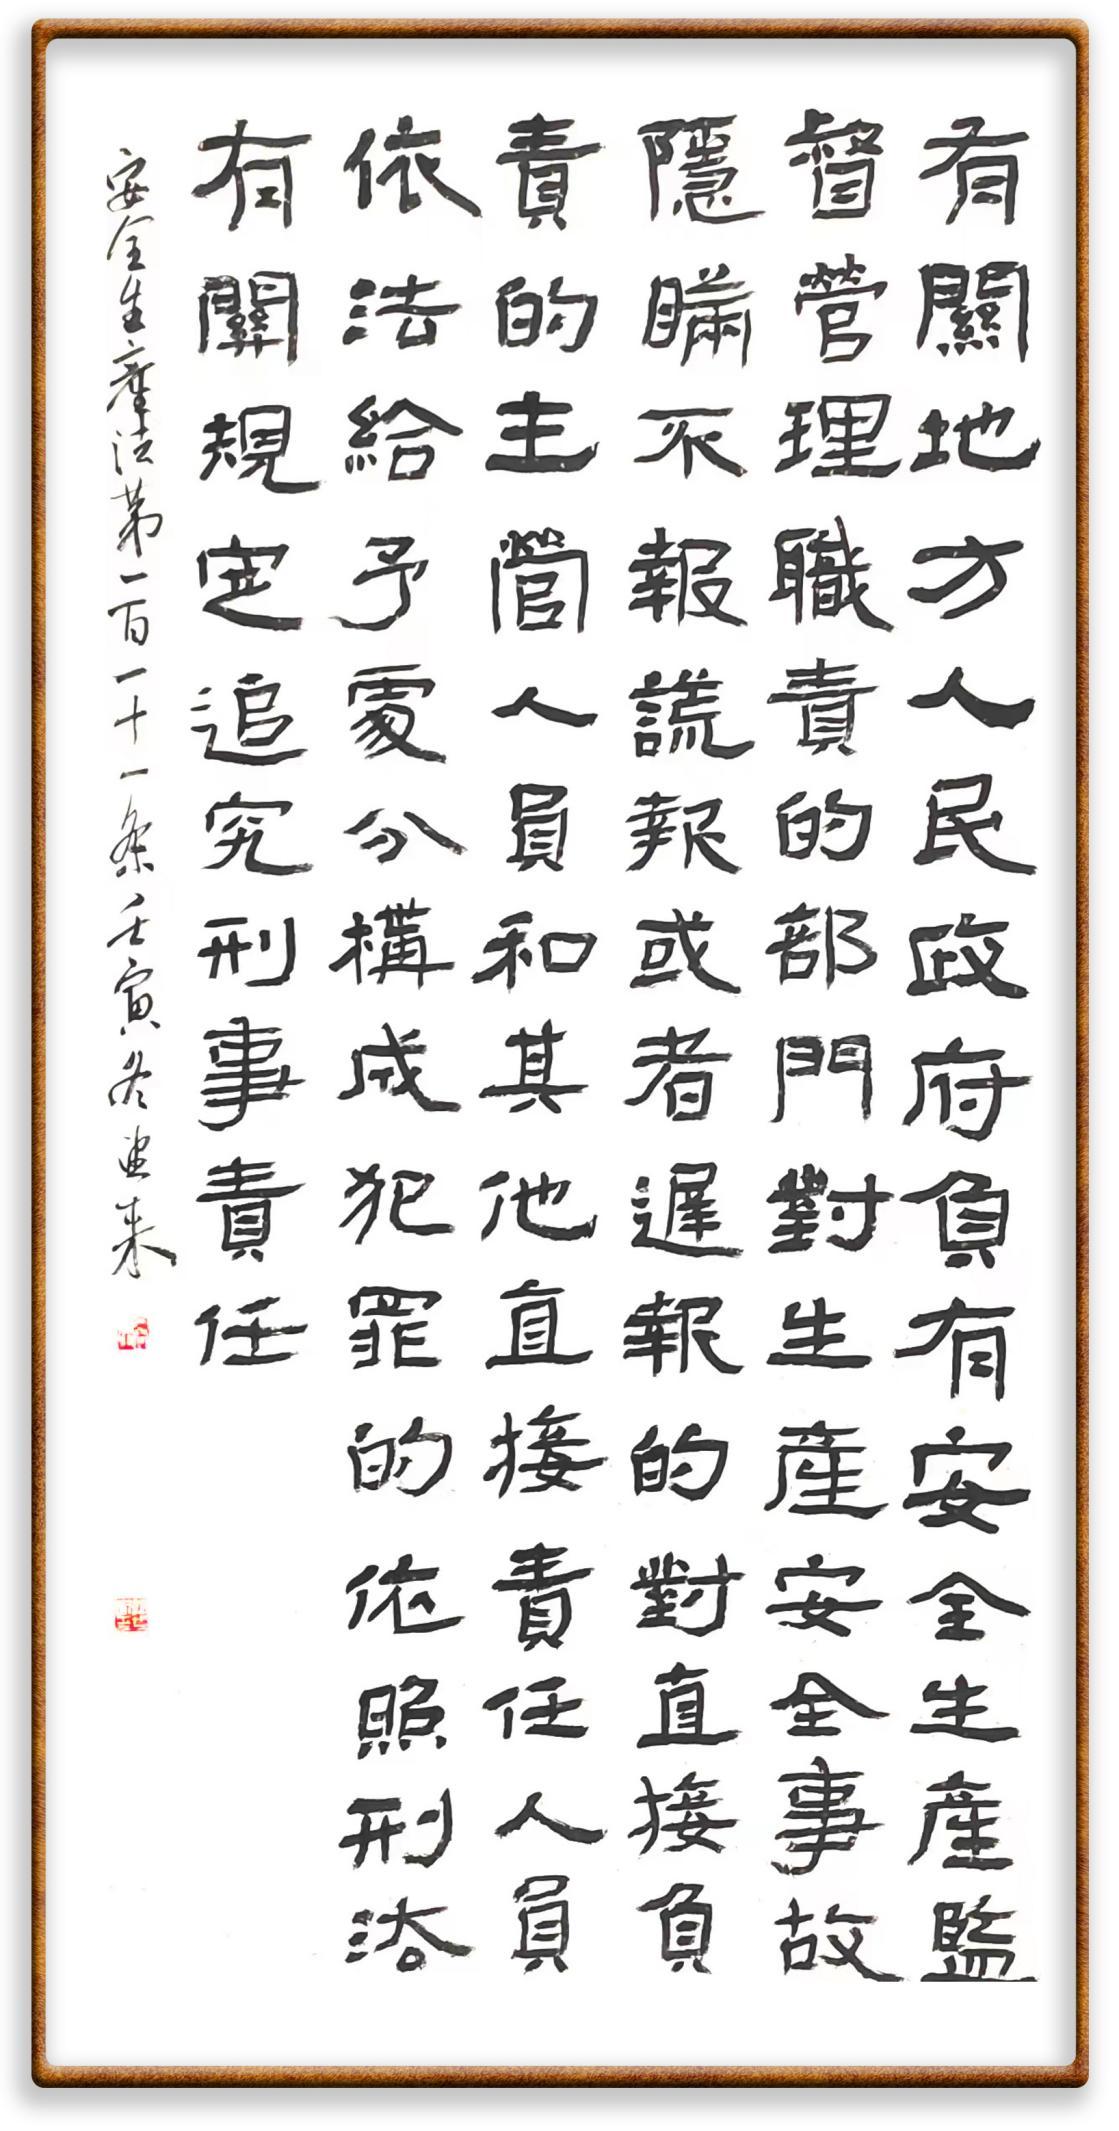 有關地方人民政府負有安全生産監
督管理職責的部門對生産安全事故
隱瞞不報謊報或者遲報的對直接負
責的主管人員和其他直接責任人員
依法給予處分構成犯罪的依照刑法
有關規定追究刑事責任
安全生產法第一百一十一条壬寅冬